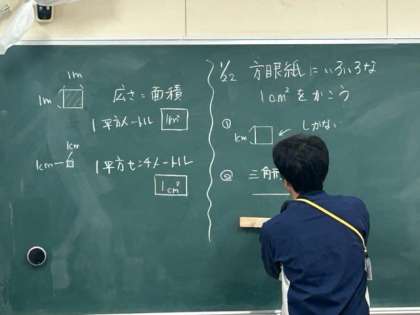 1m
1m
広さ=面積
1平方メートル 1m²
1cm
1cm
1平方センチメートル
1cm²
1/22 方眼紙にいろいろな
1cm²をかこう
①
1cm
しかない
②
三角